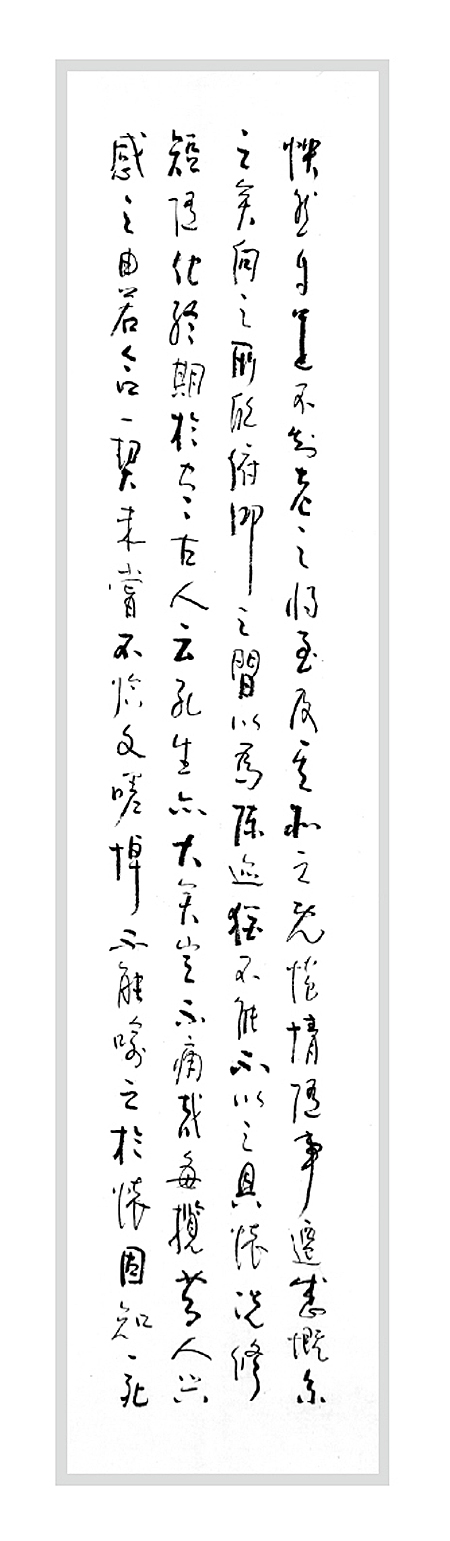 快然自足不知老之将至及其所之既惓情隨事遷感慨系
之矣向之所欣俯仰之間以為陳迹猶不能不以之興懷況修
短隨化終期於盡古人云死生亦大矣豈不痛哉每攬昔人興
感之由若合一契未嘗不臨文嗟悼不能喻之於懷固知一死